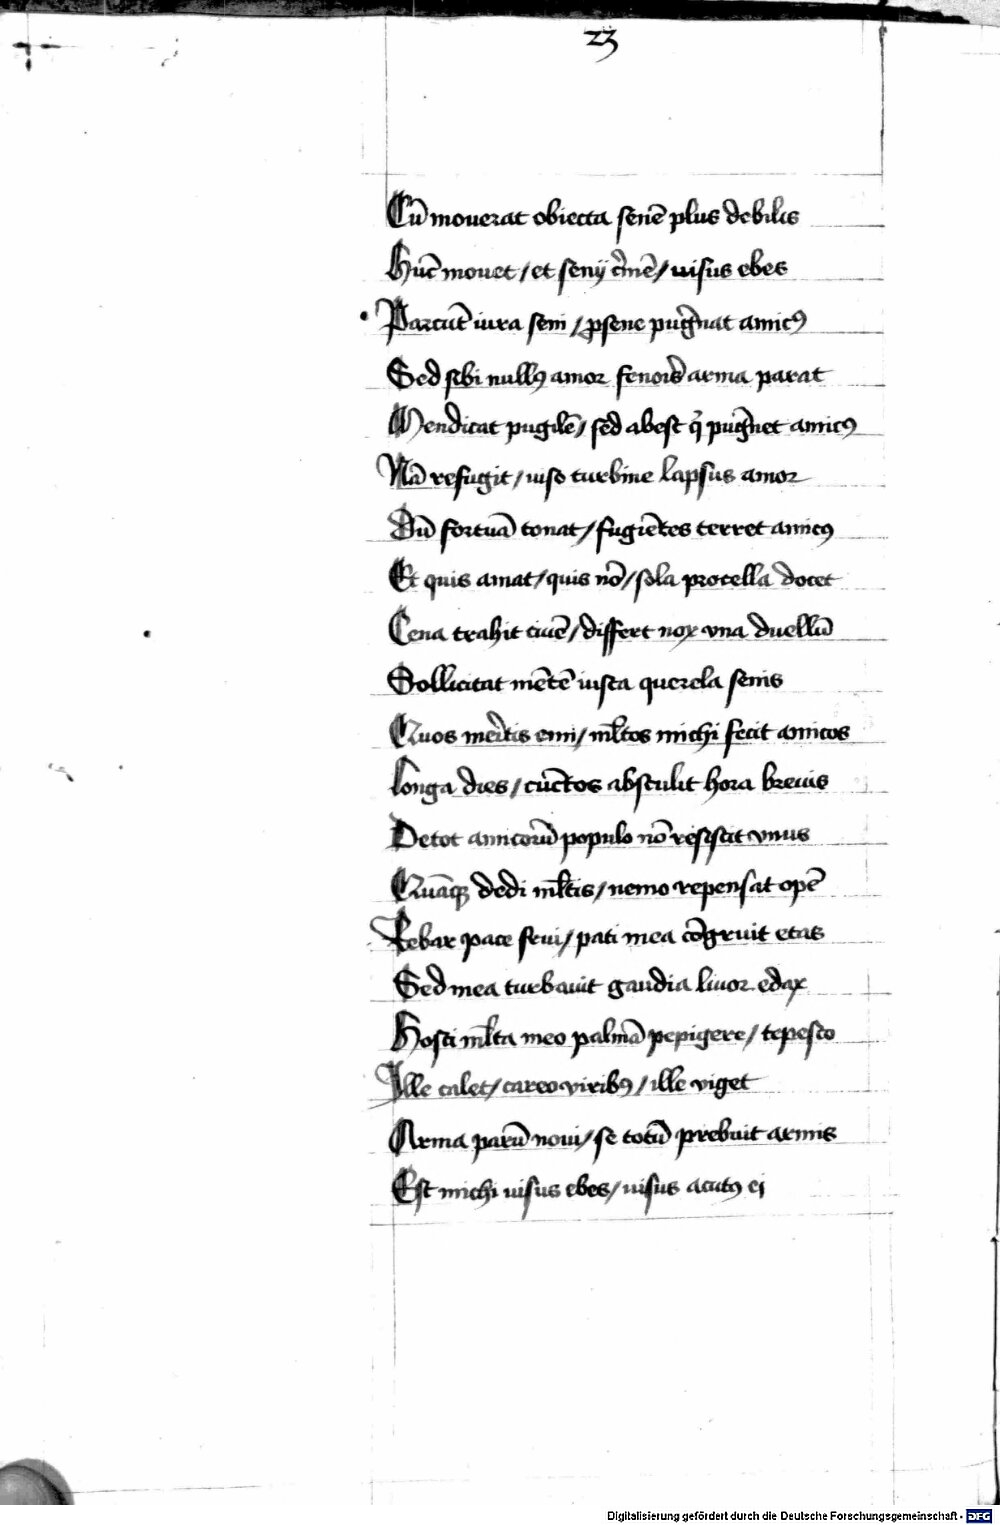 23
Cū mouerat obiecta senē plus debilis
Hūc mouet / et senij c̄mē / uisus ebes
Parcūt iura seni / p̄sene pugnat amicꝰ
Sed sibi nullꝰ amor fenoris arma parat
Mendicat pugilē / sed abest q̄ pugnet amicꝰ
Nā refugit / uiso turbine lapsus amor
Dū fortuā tonat / fugiētes terret amicꝰ
Et quis amat / quis nō / sola procella docet
Cena trahit ciuē / differt nox vna duellū
Sollicitat mētē iusta querela senis
Quos mercis emi / ml̄tos michi fecit amicos
Longa dies / cūctos abstulit hora breuis
De tot amicorū populo nō resistit vnus
Quāqꝫ dedi ml̄tis / nemo repensat opē
Rebar pace frui / pati mea cōgruit etas
Sed mea turbauit gaudia liuor edax
Hosti ml̄ta meo palmā pepigere / tepesco
Ille calet / careo viribꝰ / ille viget
Arma parū noui / se totū prebuit armis
Est michi uisus ebes / uisus acutꝰ ei
Digitalisierung gefördert durch die Deutsche Forschungsgemeinschaft - DFG